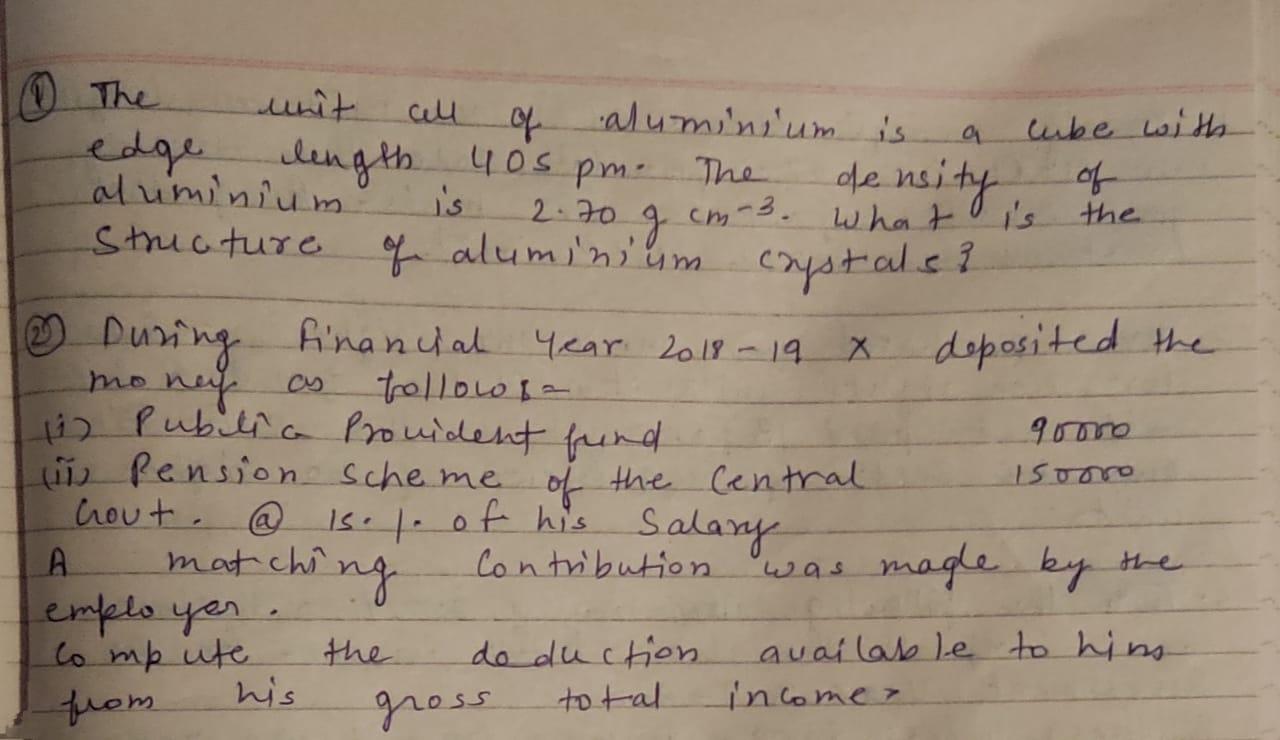 ① The unit cell of aluminium is a cube with
edge length 405 pm. The density of
aluminium is 2.70 g cm-3. what is the
structure of aluminium crystals?
② During financial Year 2018-19 X deposited the
money as follows=
(i) Public Provident fund 90000
(ii) Pension scheme of the Central 150000
Govt. @ 15.%. of his Salary
A matching Contribution was made by the
employer.
Compute the deduction available to him
from his gross total income?